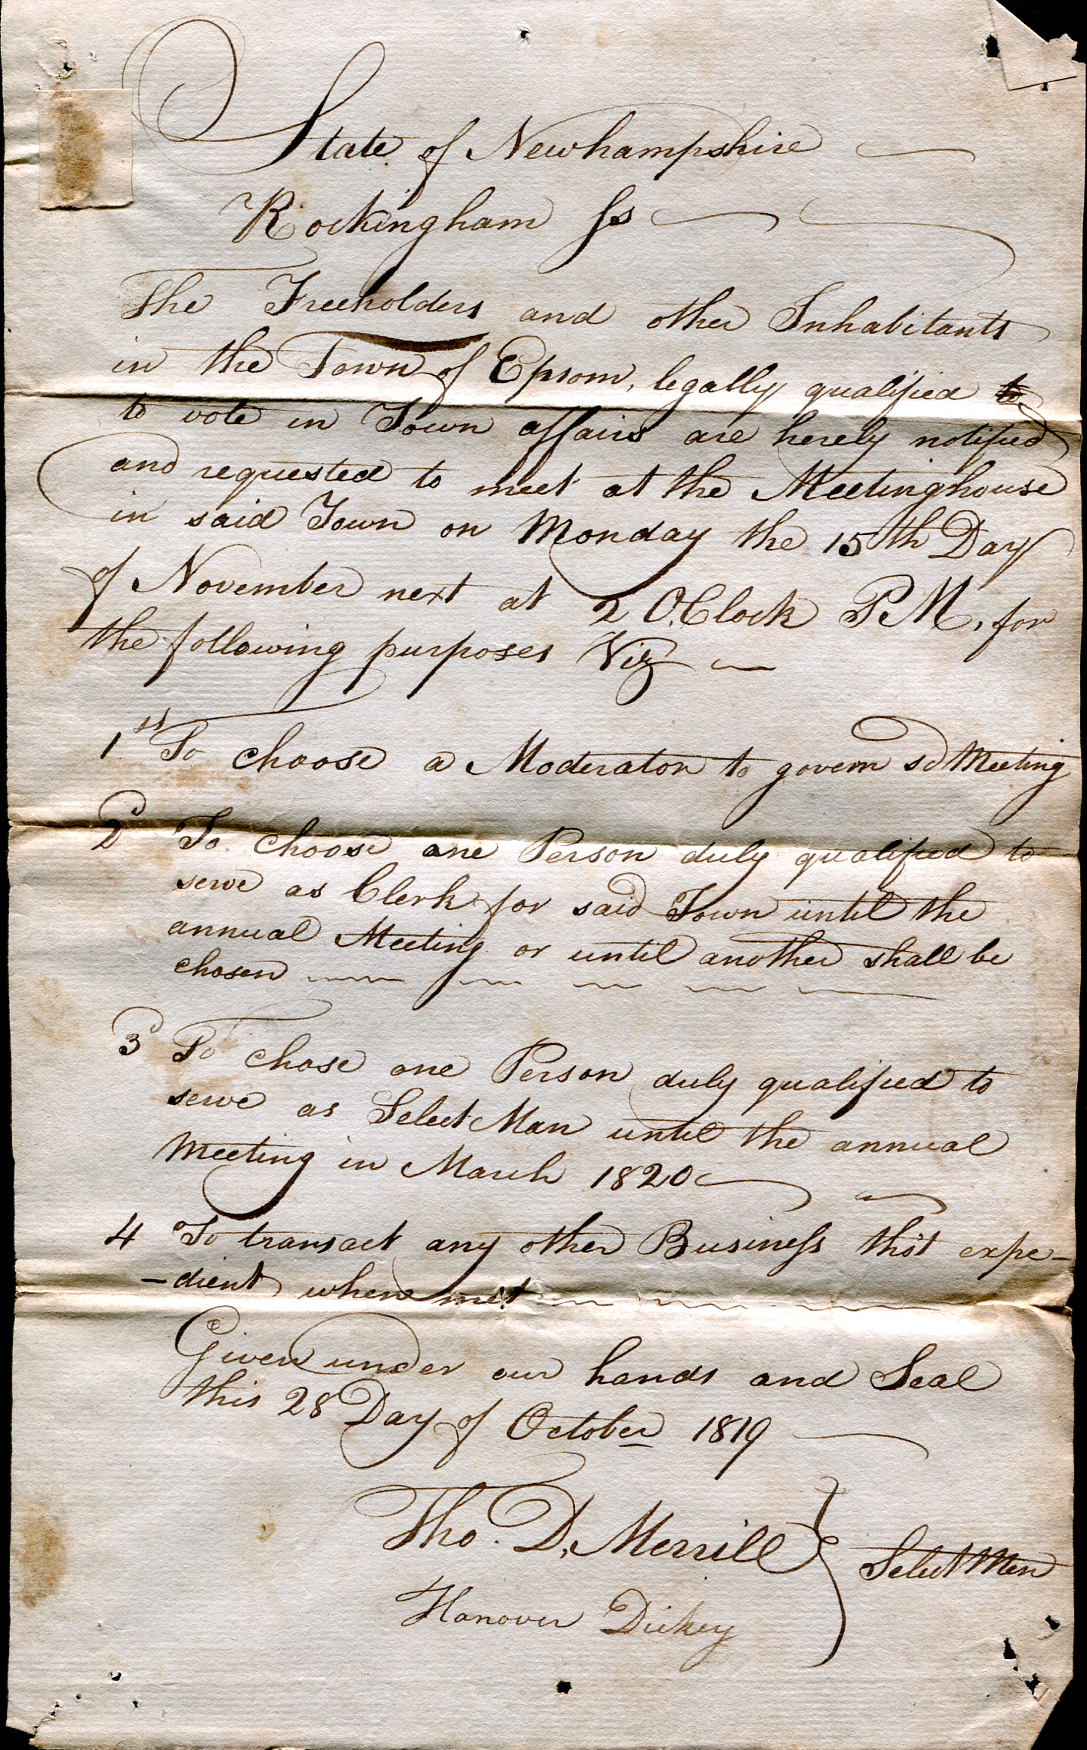 State of Newhampshire
Rockingham Ss
The Freeholders and other Inhabitants
in the Town of Epsom, legally qualified to
to vote in Town affairs are hereby notified
and requested to meet at the Meetinghouse
in said Town on Monday the 15th Day
of November next at 2 O,Clock P.M, for
the following purposes Viz
1st To choose a Moderator to govern sd Meeting
2d To choose one Person duly qualified to
serve as Clerk for said Town until the
annual Meeting or until another shall be
chosen
3d To chose one Person duly qualified to
serve as Select Man until the annual
Meeting in March 1820
4 To transact any other Business tho't expe-
-dient when met
Given under our hands and Seal
this 28 Day of October 1819
Tho. D, Merrill } Select Men
Hanover Dickey